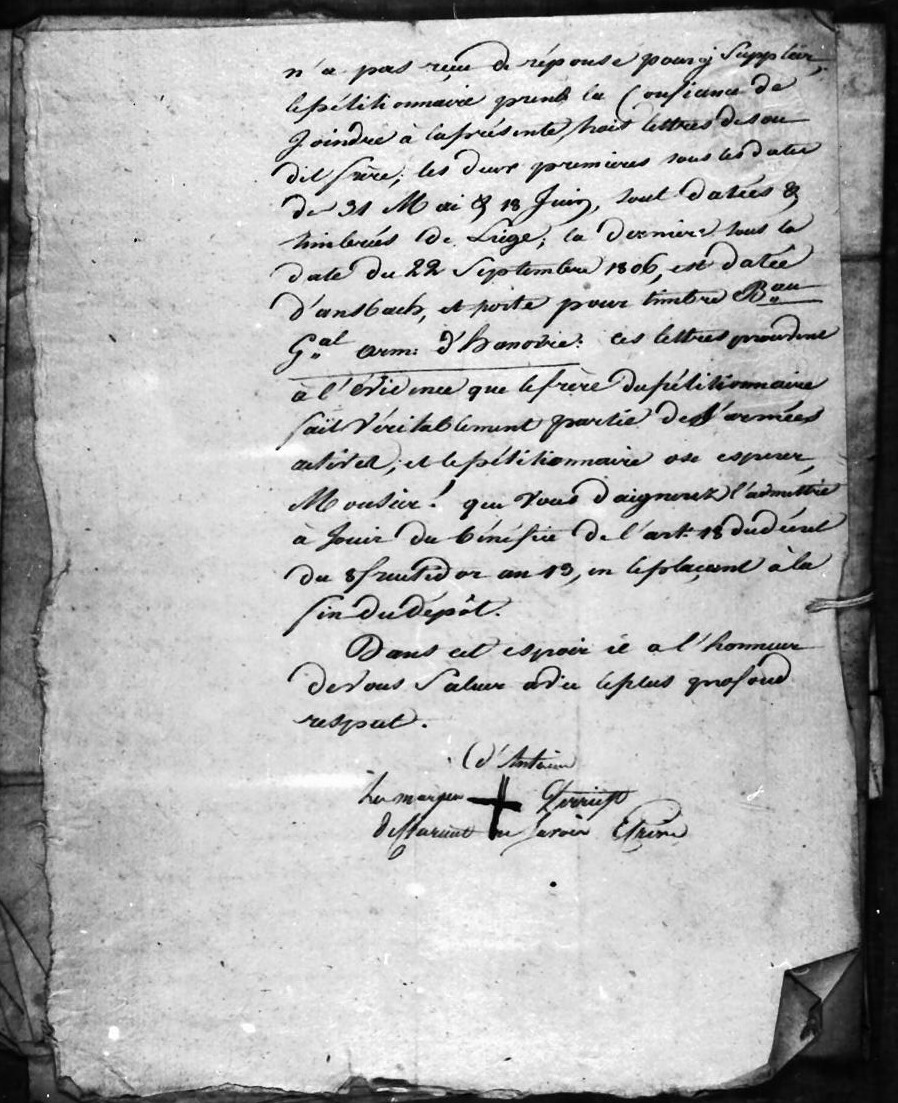 n'a pas reçu de réponse pour y suppléer,
le pétitionnaire prend la Confiance de
Joindre à la présente, trois lettres de son
dit frère; les deux premières sous les dates
de 31 Mai & 18 Juin, tout datées &
timbrées de Liége; la dernière sous la
date du 22 Septembre 1806, est datée
d'ansbach, et porte pour timbre Bau
Gal arm: d'hanovre: ces lettres prouvent
à l'évidence que le frère du pétitionnaire
fait véritablement partie de l'armées
actives, et le pétitionnaire ose esperer
Monsieur! que vous daignerez l'admettre
à Jouir du bénéfice de l'art. 18 du décret
du 8 fructidor an 13, en le plaçant à la
fin du dépôt.
Dans cet espoir il a l'honneur
de vous Saluer avec le plus profond
respect.
d'Antoine
la marque
déclarant ne Savoir Ecrire